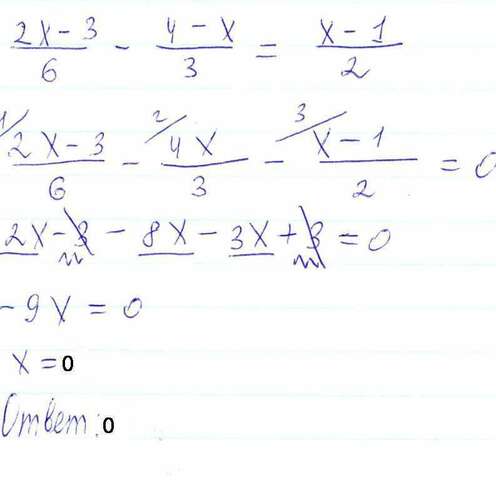 (2x - 3)/6 - (4 - x)/3 = (x - 1)/2
1/ (2x - 3)/6 - 2/ (4x)/3 - 3/ (x - 1)/2 = 0
2x - 3 - 8x - 3x + 3 = 0
- 9x = 0
x = 0
Ответ: 0